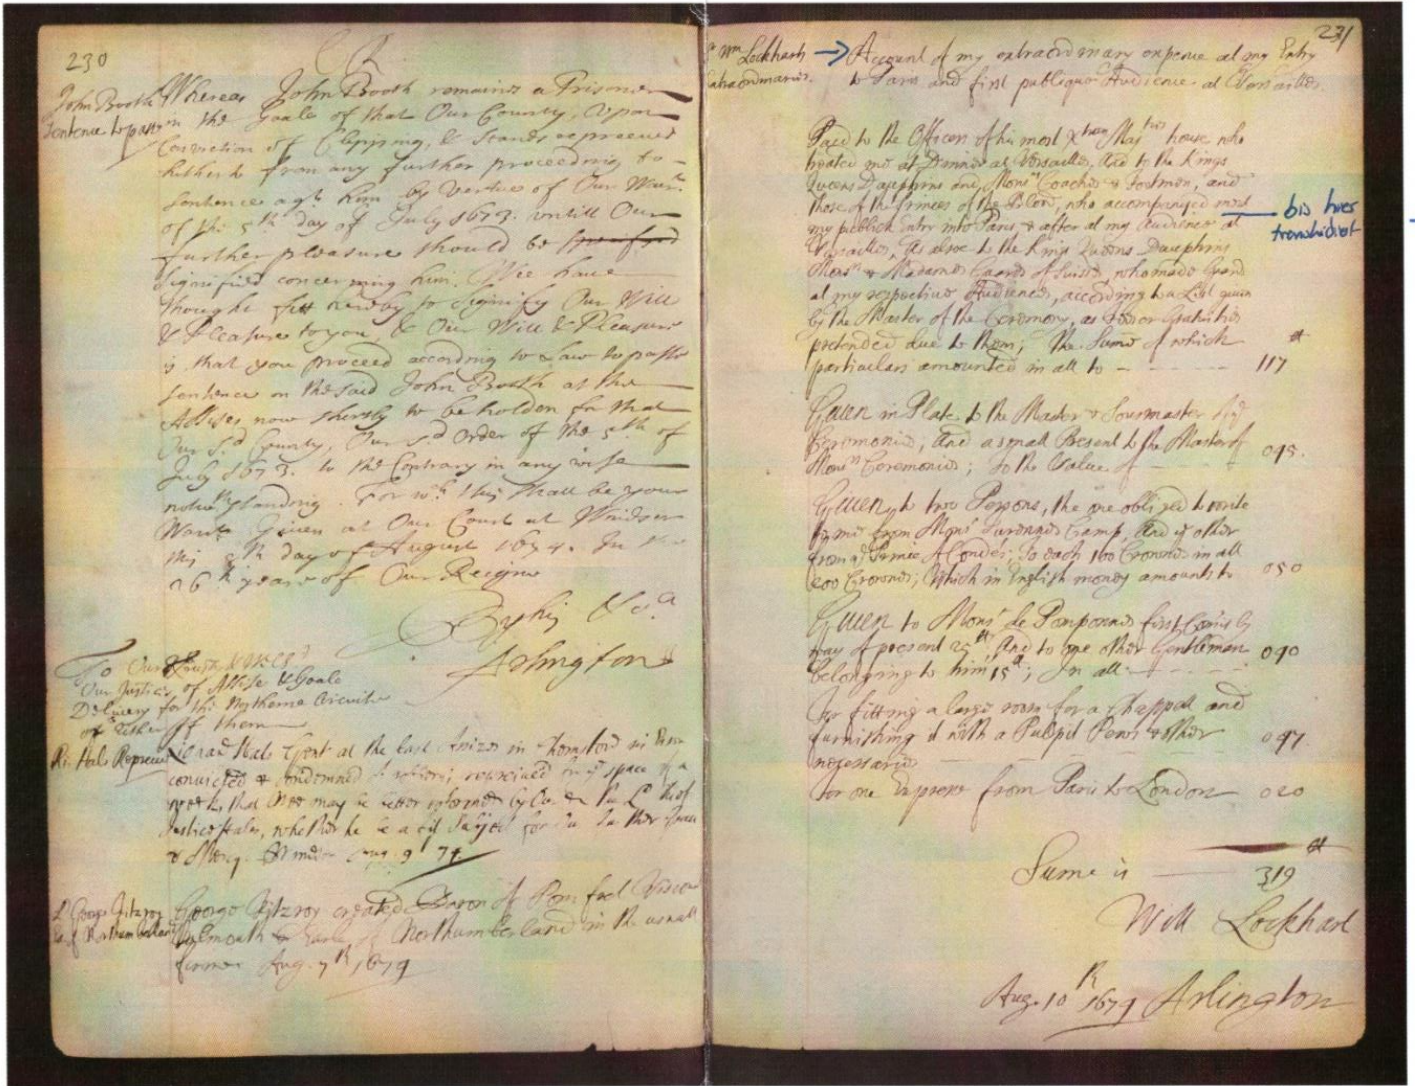 230
CR
John Booth
Sentence to passe
Whereas John Booth remains a Prisoner
in the Goale of that Our County, upon
Conviction of Clipping, & stands repreeved
hitherto from any further proceeding to
Sentence agt. him by vertue of Our Warrt.
of the 5th day of July 1673. untill Our
further pleasure should be
signified concerning him. Wee have
thought fitt hereby to signify Our Will
& Pleasure to you, & Our Will & Pleasure
is that you proceed according to Law to passe
Sentence on the said John Booth at the
Assises now shortly to be holden for that
Our sd. County, Our sd Order of the 5th of
July 1673. to the Contrary in any wise
notwthstanding. For wch. this shall be your
Warrt. Given at Our Court at Windsor
this 8th day of August 1674. In the
26th yeare of Our Reigne
Arlington
To Our
Our Justices of Assise & Goale
Delivery for the Northerne Circuite
or either of them
Ri. Hals Repreeve
at the last Assizes in Chemsford in
convicted & Condemned repreived for ye space of a
week, that Wee may be better informed by
Justice Hales, whether he be a fit Subject for
& Mercy. Windsor Aug. 9 74
L. George Fitzroy
E. of Northumberland
George Fitzroy created Baron of Pomfret Viscount
Falmouth & Earle of Northumberland in the usuall
forme Aug. 7th 1674
231
Sr Wm Lockhart
extraordinaries.
Account of my extraordinary expence at my Entry
to Paris and first publique Audience at Versailles.
Paid to the Officers of his most Xtian Majties house, who
treated me at Dinner at Versailles, And to the Kings
Queens Dauphins and Monsrs Coaches & Footmen, and
those of the Princes of the Blood, who accompanyed mee
my publick Entry into Paris, & after at my Audience at
Versailles, As alsoe to the Kings Queens Dauphins
Monsrs & Madames Guards of Suisse, who made Guard
at my respective Audiences, according to a List given
by the Master of the Ceremony, as Fees or Gratuities
pretended due to them; The Sume of which
particulars amounted in all to - - - - - 117
Given in Plate to the Master & Sousmaster of ye
Ceremonies, And a small Present to the Master of
Monsrs Ceremonies; To the Value of - - - - 095.
Given to two Persons, the one obliged to write
to me from Monsr Turennes Camp, And ye other
from ye Prince of Condes; To each 100 Crownes in all
200 Crownes; Which in English money amounts to 050
Given to Monsr de Pomponnes first Comis by
way of present 25 , And to one other Gentleman
belonging to him 15 ; In all - - - - 090
For fitting a large roome for a Chappell and
furnishing it with a Pulpit Pews & other
necessaries 047
For one Expresse from Paris to London 020
Sume is 319
Will Lockhart
Aug. 10th 1674 Arlington
bis hier